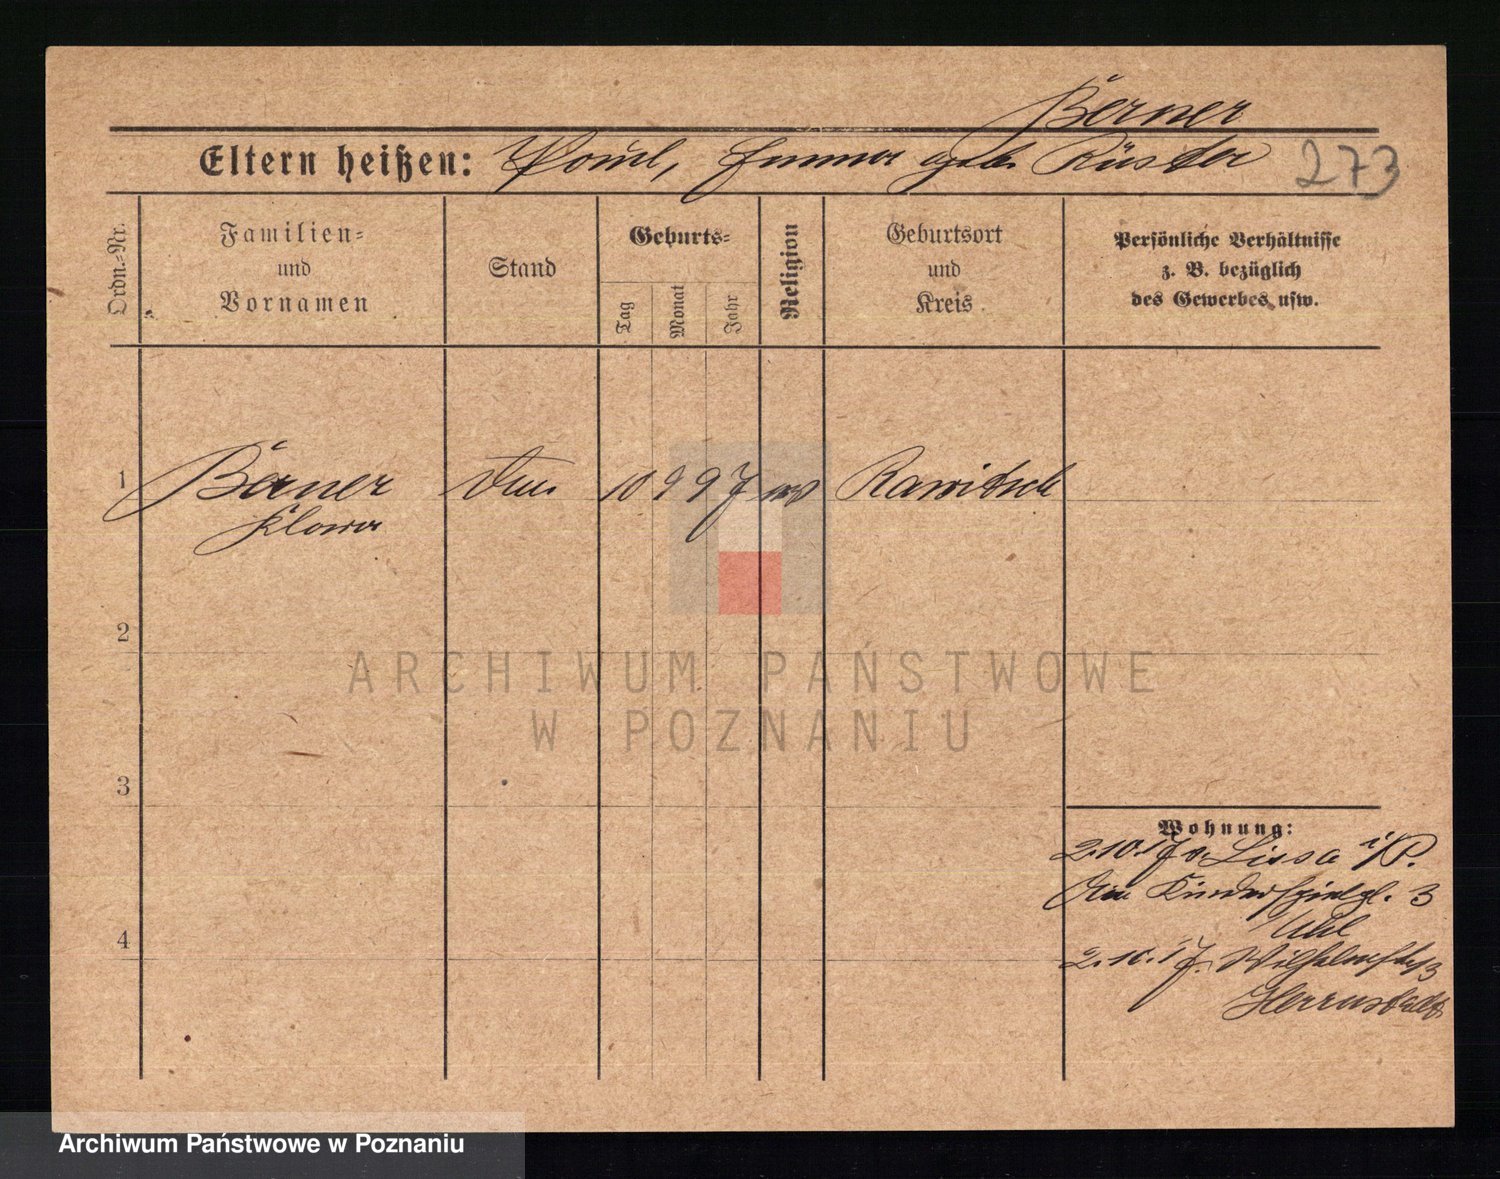 Berner
Eltern heißen: Paul, Emma geb. Rüster 273
Ordn.-Nr.
Familien-
und
Vornamen
Stand
Geburts-
Tag
Monat
Jahr
Religion
Geburtsort
und
Kreis
Persönliche Verhältnisse
z. B. bezüglich
des Gewerbes usw.
1 Berner 10 9 97 Rawitsch
Klara
2
ARCHIWUM PAŃSTWOWE
W POZNANIU
3
Wohnung:
2.10.17 v. Lissa i/P.
Kinderspielpl. 3
4
2.10.17. Wilhelmstr 3
Herrnstadt
Archiwum Państwowe w Poznaniu